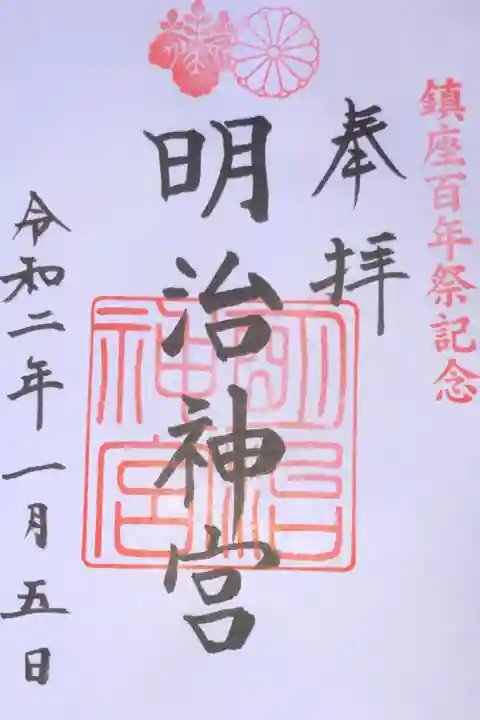 鎮座百年祭記念
奉拝
明治神宮
明治神宮
令和二年一月五日